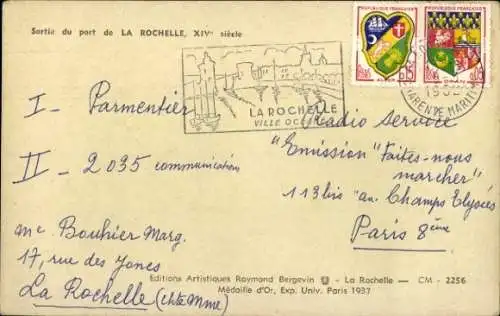 Sortie du port de LA ROCHELLE, XIVᵉ siècle
REPUBLIQUE FRANÇAISE
REPUBLIQUE FRANÇAISE
0,15
0,05
LA ROCHELLE
VILLE
CHARENTE MARITIME
I - Parmentier
II - 2035 communication
Radio Service
"Emission "Faites-nous
marcher"
113 bis av. Champs Elysées
Paris 8ème
Mc Bouhier Marg.
17, rue des Jones
La Rochelle (chte Mme)
Editions Artistiques Raymond Bergevin - La Rochelle — CM - 2256
Médaille d'Or, Exp. Univ. Paris 1937